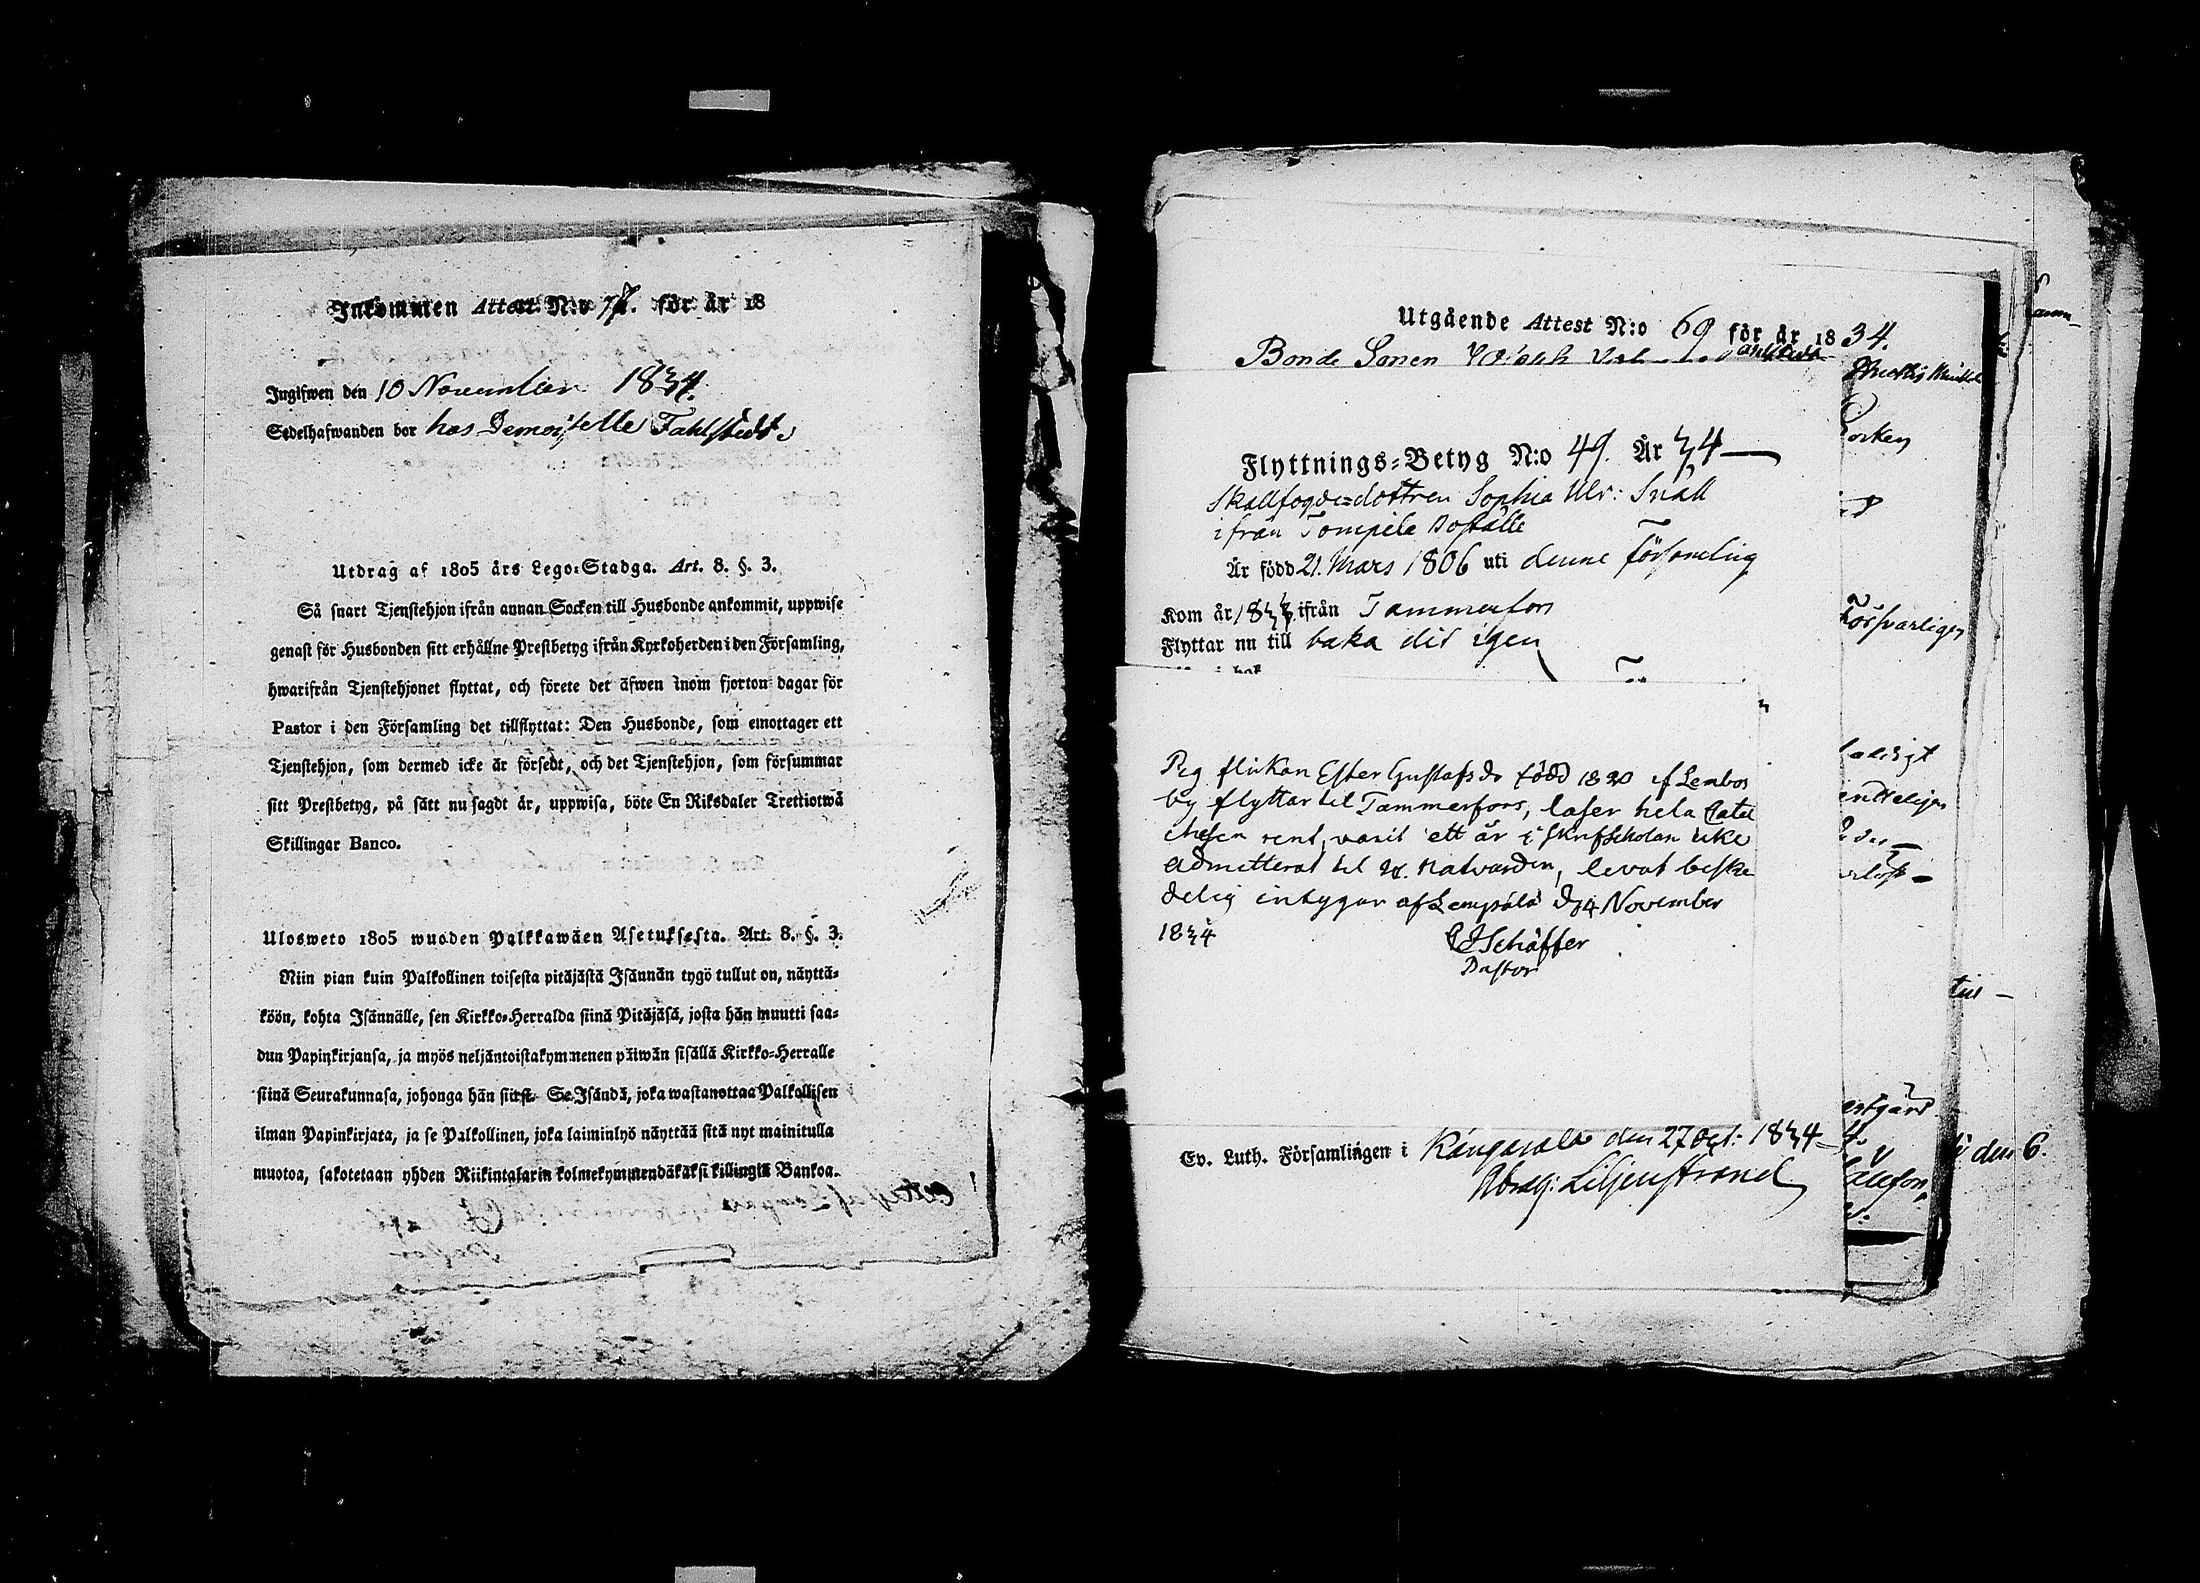 Inkommen Attest N:o 77. för år 18
Ingifwen den 10 November 1834.
Sedelhafwanden bor hos Demoiselle Fahlstedt
Utdrag af 1805 års Lego-Stadga. Art. 8. §. 3.
Så snart Tjenstehjon ifrån annan Socken till Husbonde ankommit, uppwise
genast för Husbonden sitt erhållne Prestbetyg ifrån Kyrkoherden i den Församling,
hwarifrån Tjenstehjonet flyttat, och förete det äfwen inom fjorton dagar för
Pastor i den Församling det tillflyttat: Den Husbonde, som emottager ett
Tjenstehjon, som dermed icke är försedt, och det Tjenstehjon, som försummar
sitt Prestbetyg, på sätt nu sagdt är, uppwisa, böte En Riksdaler Trettiotwå
Skillingar Banco.
Ulosweto 1805 wuoden Palkkawäen Asetuksesta. Art. 8. §. 3.
Niin pian kuin Palkollinen toisesta pitäjästä Isännän tygö tullut on, näyttä-
köön, kohta Isännälle, sen Kirkko-Herralda siinä Pitäjäsä, josta hän muutti saa-
dun Papinkirjansa, ja myös neljäntoistakymmenen päiwän sisällä Kirkko-Herralle
siinä Seurakunnasa, johonga hän siirst. Se Isändä, joka wastanottaa Palkollisen
ilman Papinkirjata, ja se Palkollinen, joka laiminlyö näyttää sitä nyt mainitulla
muotoa, sakotetaan yhden Riikintalarin kolmekymmendäkaksi killingiä Bankoa.
Utgående Attest N:o 69 för år 1834.
Bonde Sonen
Flyttnings-Betyg N:o 49. År 34
Skallfogde-dottren Sophia Ulr: Snäll
ifrån Tompila Boställe
Är född 21. Mars 1806 uti denne Församling
Kom år 1833 ifrån Tammerfors
Flyttar nu till baka dit igen
Pig flickan Ester Gustafsdr född 1820 af Lembois
by flyttar til Tammerfors, läser hela Cate
chesen rent, varit ett år i Skrifscholan icke
admitterad til H. Natvarden, levat beske
delig intygar af Lempälä d 4 November
1834
Schäffer
Pastor
Ev. Luth. Församlingen i Kangasala den 27 Oct: 1834
Abrah: Liljenstrand
den 6.